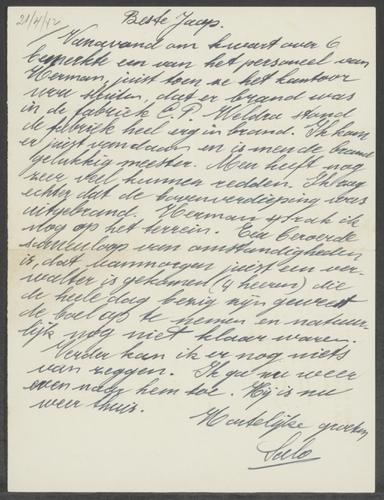 21/4/42
Beste Jaap.
Vanavond om kwart over 6
bemerkte een van het personeel van
Herman, juist toen ze het kantoor
wou sluiten, dat er brand was
in de fabriek C.P. Weldra stond
de fabriek heel erg in brand. Ik kom
er juist vandaan en is men de brand
gelukkig meester. Men heeft nog
zeer veel kunnen redden. Ik zag
echter dat de bovenverdieping was
uitgebrand. Herman sprak ik
nog op het terrein. Een beroerde
samenloop van omstandigheden
is, dat vanmorgen juist een ver-
walter is gekomen (4 heeren) die
de heele dag bezig zijn geweest
de boel op te nemen en natuur-
lijk nog niet klaar waren.
Verder kan ik er nog niets
van zeggen. Ik ga nu weer
even naar hem toe. Hij is nu
weer thuis.
Hartelijke groeten